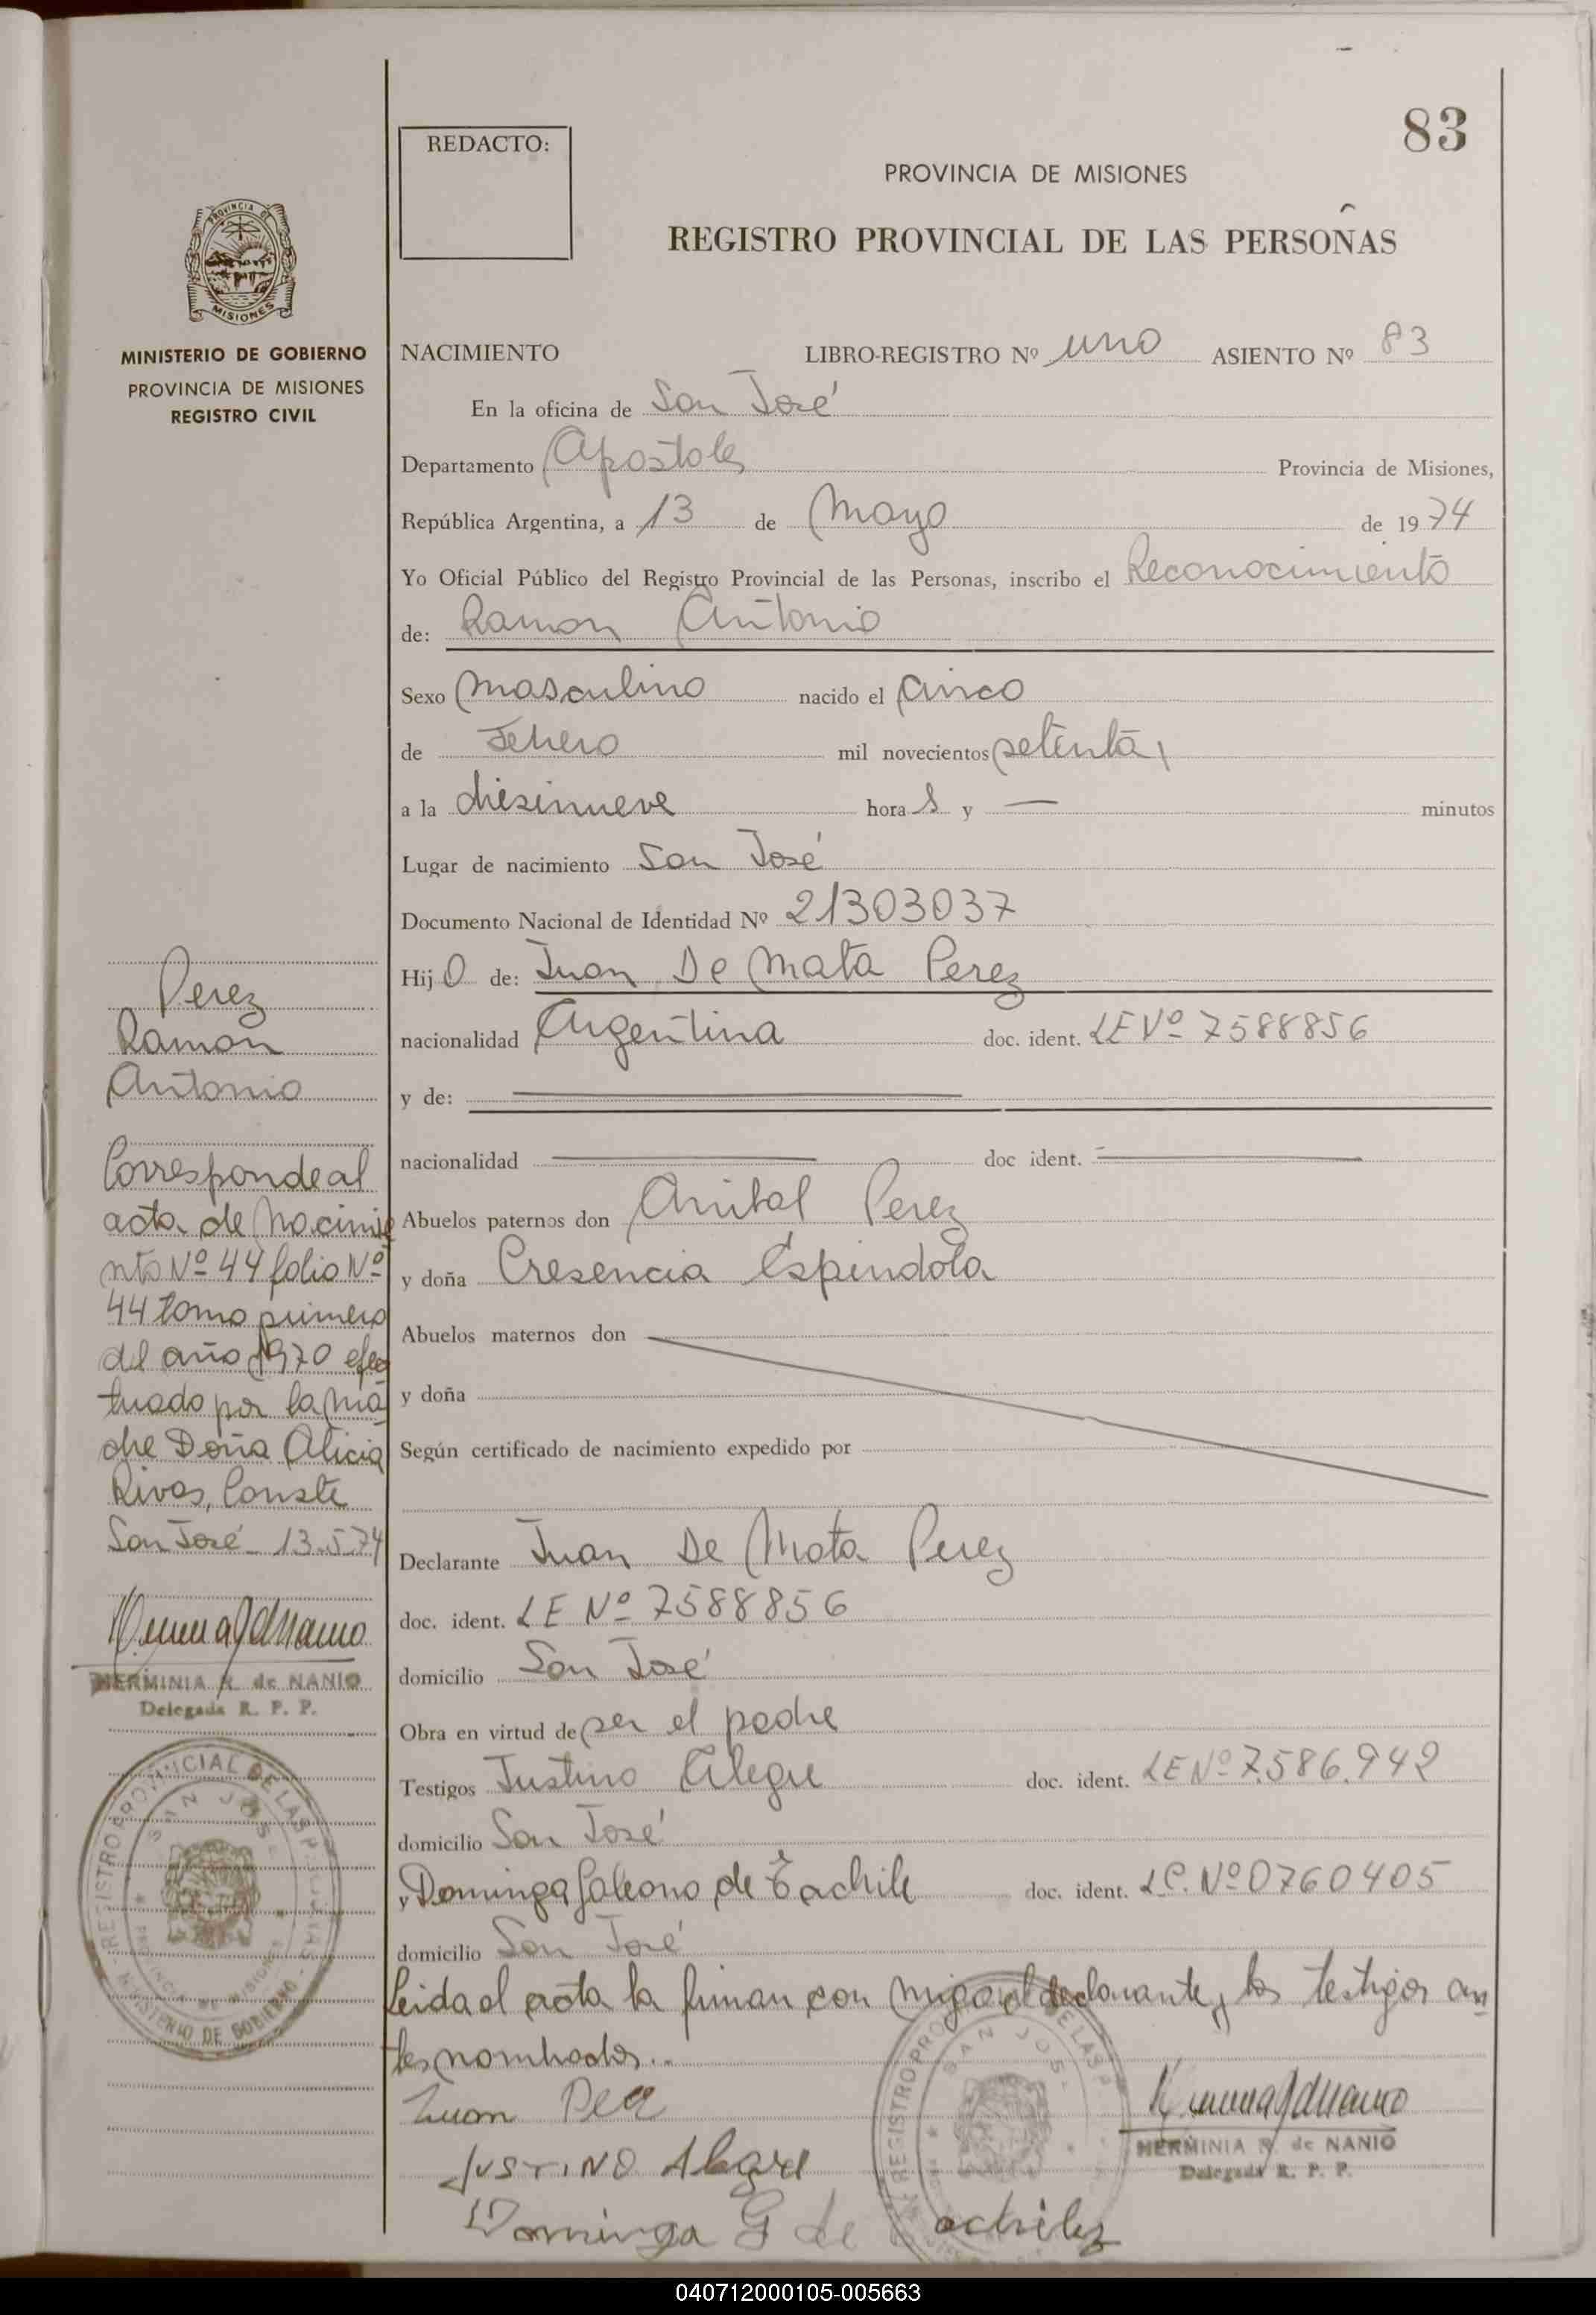 83
REDACTO:
PROVINCIA DE MISIONES
REGISTRO PROVINCIAL DE LAS PERSONAS
PROVINCIA DE
MISIONES
MINISTERIO DE GOBIERNO
PROVINCIA DE MISIONES
REGISTRO CIVIL
NACIMIENTO LIBRO-REGISTRO Nº uno ASIENTO Nº 83
En la oficina de San José
Departamento Apostoles Provincia de Misiones,
República Argentina, a 13 de Mayo de 1974
Yo Oficial Público del Registro Provincial de las Personas, inscribo el Reconocimiento
de: Ramon Antonio
Sexo Masculino nacido el cinco
de Febrero mil novecientos setenta,
a la diesinueve horas y —
minutos
Lugar de nacimiento San José
Documento Nacional de Identidad Nº 21303037
Hijo de: Juan De Mata Perez
nacionalidad Argentina doc. ident. LE Nº 7588856
y de:
nacionalidad doc ident.
Abuelos paternos don Anibal Perez
y doña Cresencia Espindola
Abuelos maternos don
y doña
Según certificado de nacimiento expedido por
Declarante Juan De Mata Perez
doc. ident. LE Nº 7588856
domicilio San José
Obra en virtud de ser el padre
Testigos Justino Alegre doc. ident. LE Nº 7.586.942
domicilio San José
y Dominga Galeono de Tachile doc. ident. L.C. Nº 0760405
domicilio San José
Leida el acta la firman con migo el declarante y los testigos an
tes nombrados..
Juan
JUSTINO Alegre
Dominga G de
HERMINIA R. de NANIO
Delegada R. P. P.
Perez
Ramon
Antonio
Corresponde al
acta de Nacimie
nto Nº 44 folio Nº
44 tomo primero
del año 1970 efec
tuado por la Ma
dre Doña Alicia
Rivas, Conste
San José 13.5.74
HERMINIA R. de NANIO
Delegada R. P. P.
REGISTRO PROVINCIAL DE LAS PERSONAS
SAN JOSE
PROVINCIA DE MISIONES
MINISTERIO DE GOBIERNO
040712000105-005663